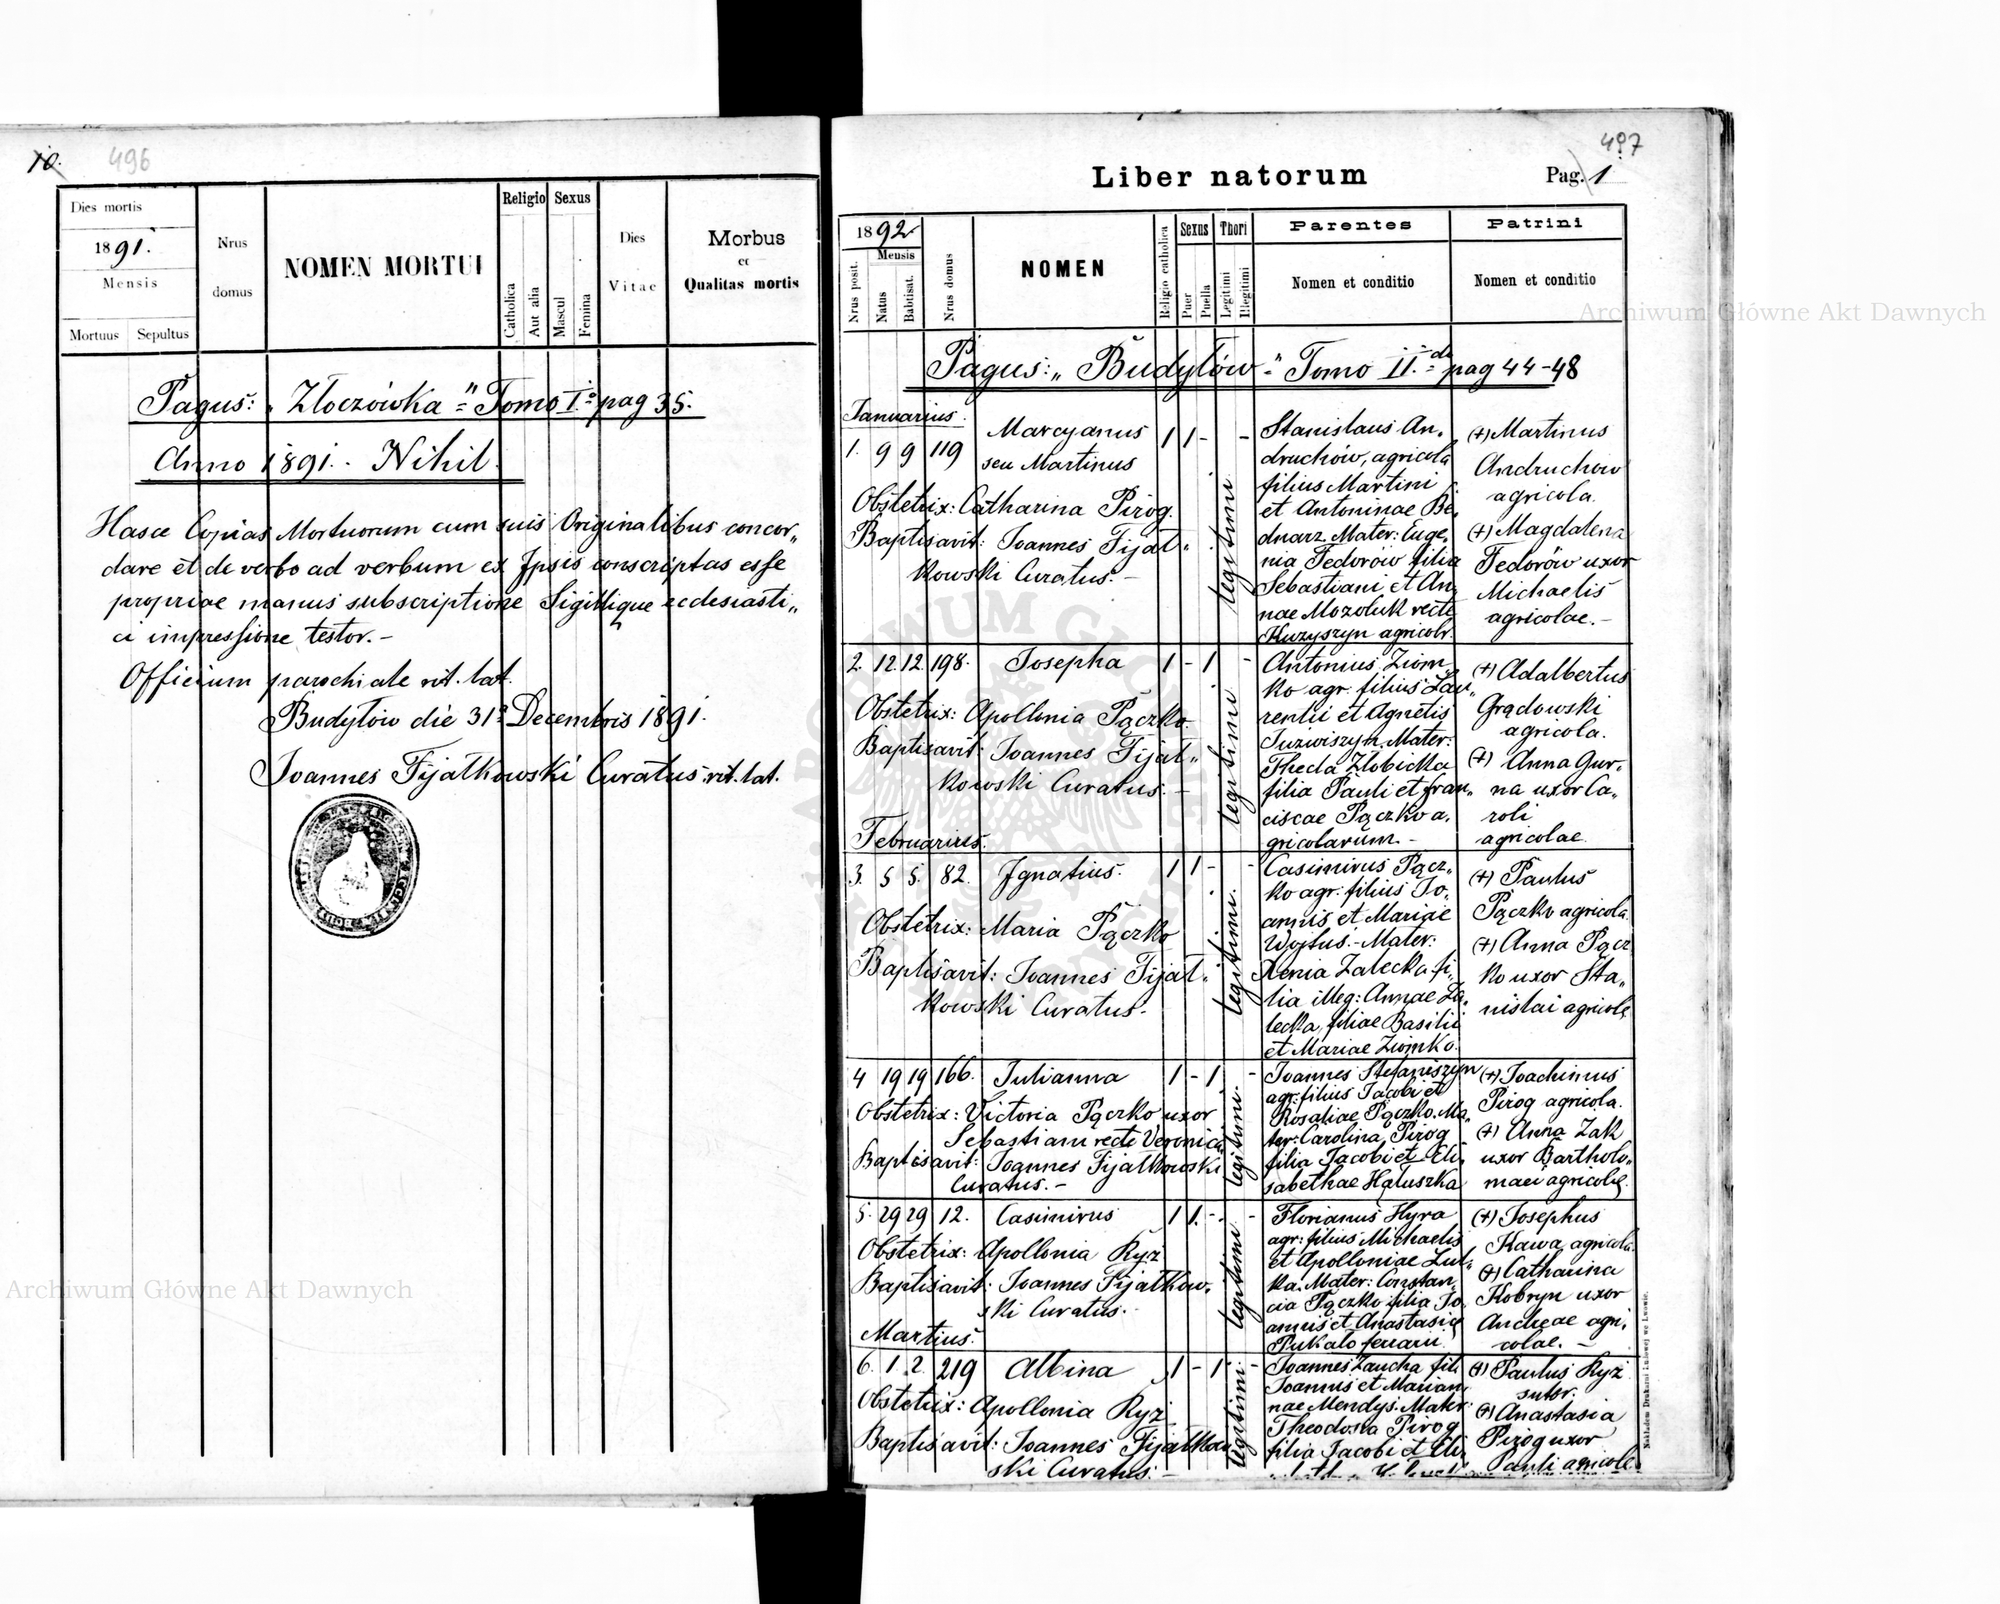 10.
496
Dies mortis
1891.
Mensis
Mortuus
Sepultus
Nrus
domus
NOMEN MORTUI
Religio
Catholica
Aut alia
Sexus
Mascul
Femina
Dies
Vitae
Morbus
et
Qualitas mortis
Pagus: „Złoczówka" Tomo I.o pag 35.
Anno 1891. Nihil.
Hasce Copias Mortuorum cum suis Originalibus concor„
dare et de verbo ad verbum ex Ipsis conscriptas esse
propriae manus subscriptione Sigillique ecclesiasti„
ci impressione testor.-
Officium parochiale rit. lat.
Budyłów die 31a Decembris 1891.
Joannes Fijałkowski Curatus rit. lat.
497
Liber natorum
Pag. 1
1892
Mensis
Nrus posit.
Natus
Babtisat.
Nrus domus
NOMEN
Religio catholica
Sexus
Puer
Puella
Thori
Legitimi
Illegitimi
Parentes
Nomen et conditio
Patrini
Nomen et conditio
Pagus: „Budyłów" Tomo II.do pag 44-48
Januarius.
1. 9 9 119 Marcyanus
seu Martinus
1 1 - -
Obstetrix: Catharina Pirog.
Baptisavit: Joannes Fijał„
kowski Curatus.-
legitimi
Stanislaus An„
druchów, agricola
filius Martini
et Antoninae Be„
dnarz. Mater: Euge„
nia Fedorów filia
Sebastiani et An„
nae Mozoluk recte
Huzyszyn agricolr.
(+) Martinus
Andruchow
agricola.
(+) Magdalena
Fedorów uxor
Michaelis
agricolae.-
2. 12 12 198. Josepha 1 - 1 -
Obstetrix: Apollonia Pączko
Baptisavit: Joannes Fijał„
kowski Curatus.-
legitimi
Antonius Ziom„
ko agr. filius Lau„
rentii et Agnetis
Juzwiszyn. Mater:
Thecla Złobicka
filia Pauli et fran„
ciscae Pączko a„
gricolarum.-
(+) Adalbertus
Grądowski
agricola.
(+) Anna Gur„
na uxor Ca„
roli
agricolae.
Februarius.
3. 5 5. 82. Ignatius. 1 1 - -
Obstetrix: Maria Pączko
Baptisavit: Joannes Fijał„
kowski Curatus.
legitimi
Casimirus Pącz„
ko agr. filius Jo„
annis et Mariae
Wojtus.- Mater:
Xenia Załecka fi„
lia illeg: Annae Za„
lecka, filiae Basilii
et Mariae Ziomko.
(+) Paulus
Pączko agricola.
(+) Anna Pącz
ko uxor Sta„
nislai agricolę
4 19 19 166. Julianna 1 - 1 -
Obstetrix: Victoria Pączko uxor
Sebastiani recte Veronica
Baptisavit: Joannes Fijałkowski
Curatus.-
legitimi
Joannes Stefaniszyn
agr. filius Jacobi et
Rosaliae Pączko. Ma„
ter: Carolina Pirog
filia Jacobi et Eli„
sabethae Hałuszka
(+) Joachimus
Pirog agricola.
(+) Anna Zak
uxor Bartholo„
maei agricolę.
5. 29 29 12. Casimirus 1 1. - -
Obstetrix: Apollonia Ryż
Baptisavit: Joannes Fijałkow„
ski Curatus.
legitimi
Florianus Hyra
agr: filius Michaelis
et Apolloniae Lut„
ka. Mater: Constan„
cia Pączko filia Jo„
annis et Anastasię
Pukało ferrarii
(+) Josephus
Kawa agricola.
(+) Catharina
Kobryn uxor
Andreae agri„
colae.-
Martius.
6. 1. 2. 219 Albina 1 - 1 -
Obstetrix: Apollonia Ryż
Baptisavit: Joannes Fijałkow
ski Curatus.-
legitimi
Joannes Zaucha fili
Joannis et Marian„
nae Mendys. Mater:
Theodosia Pirog
filia Jacobi et Eli
(+) Paulus Ryż
sutor.
(+) Anastasia
Pirog uxor
Pauli agricolę
Nakładem Drukarni Ludowej we Lwowie.
ARCHIWUM GŁÓWNE AKT DAWNYCH
Archiwum Główne Akt Dawnych
Archiwum Główne Akt Dawnych